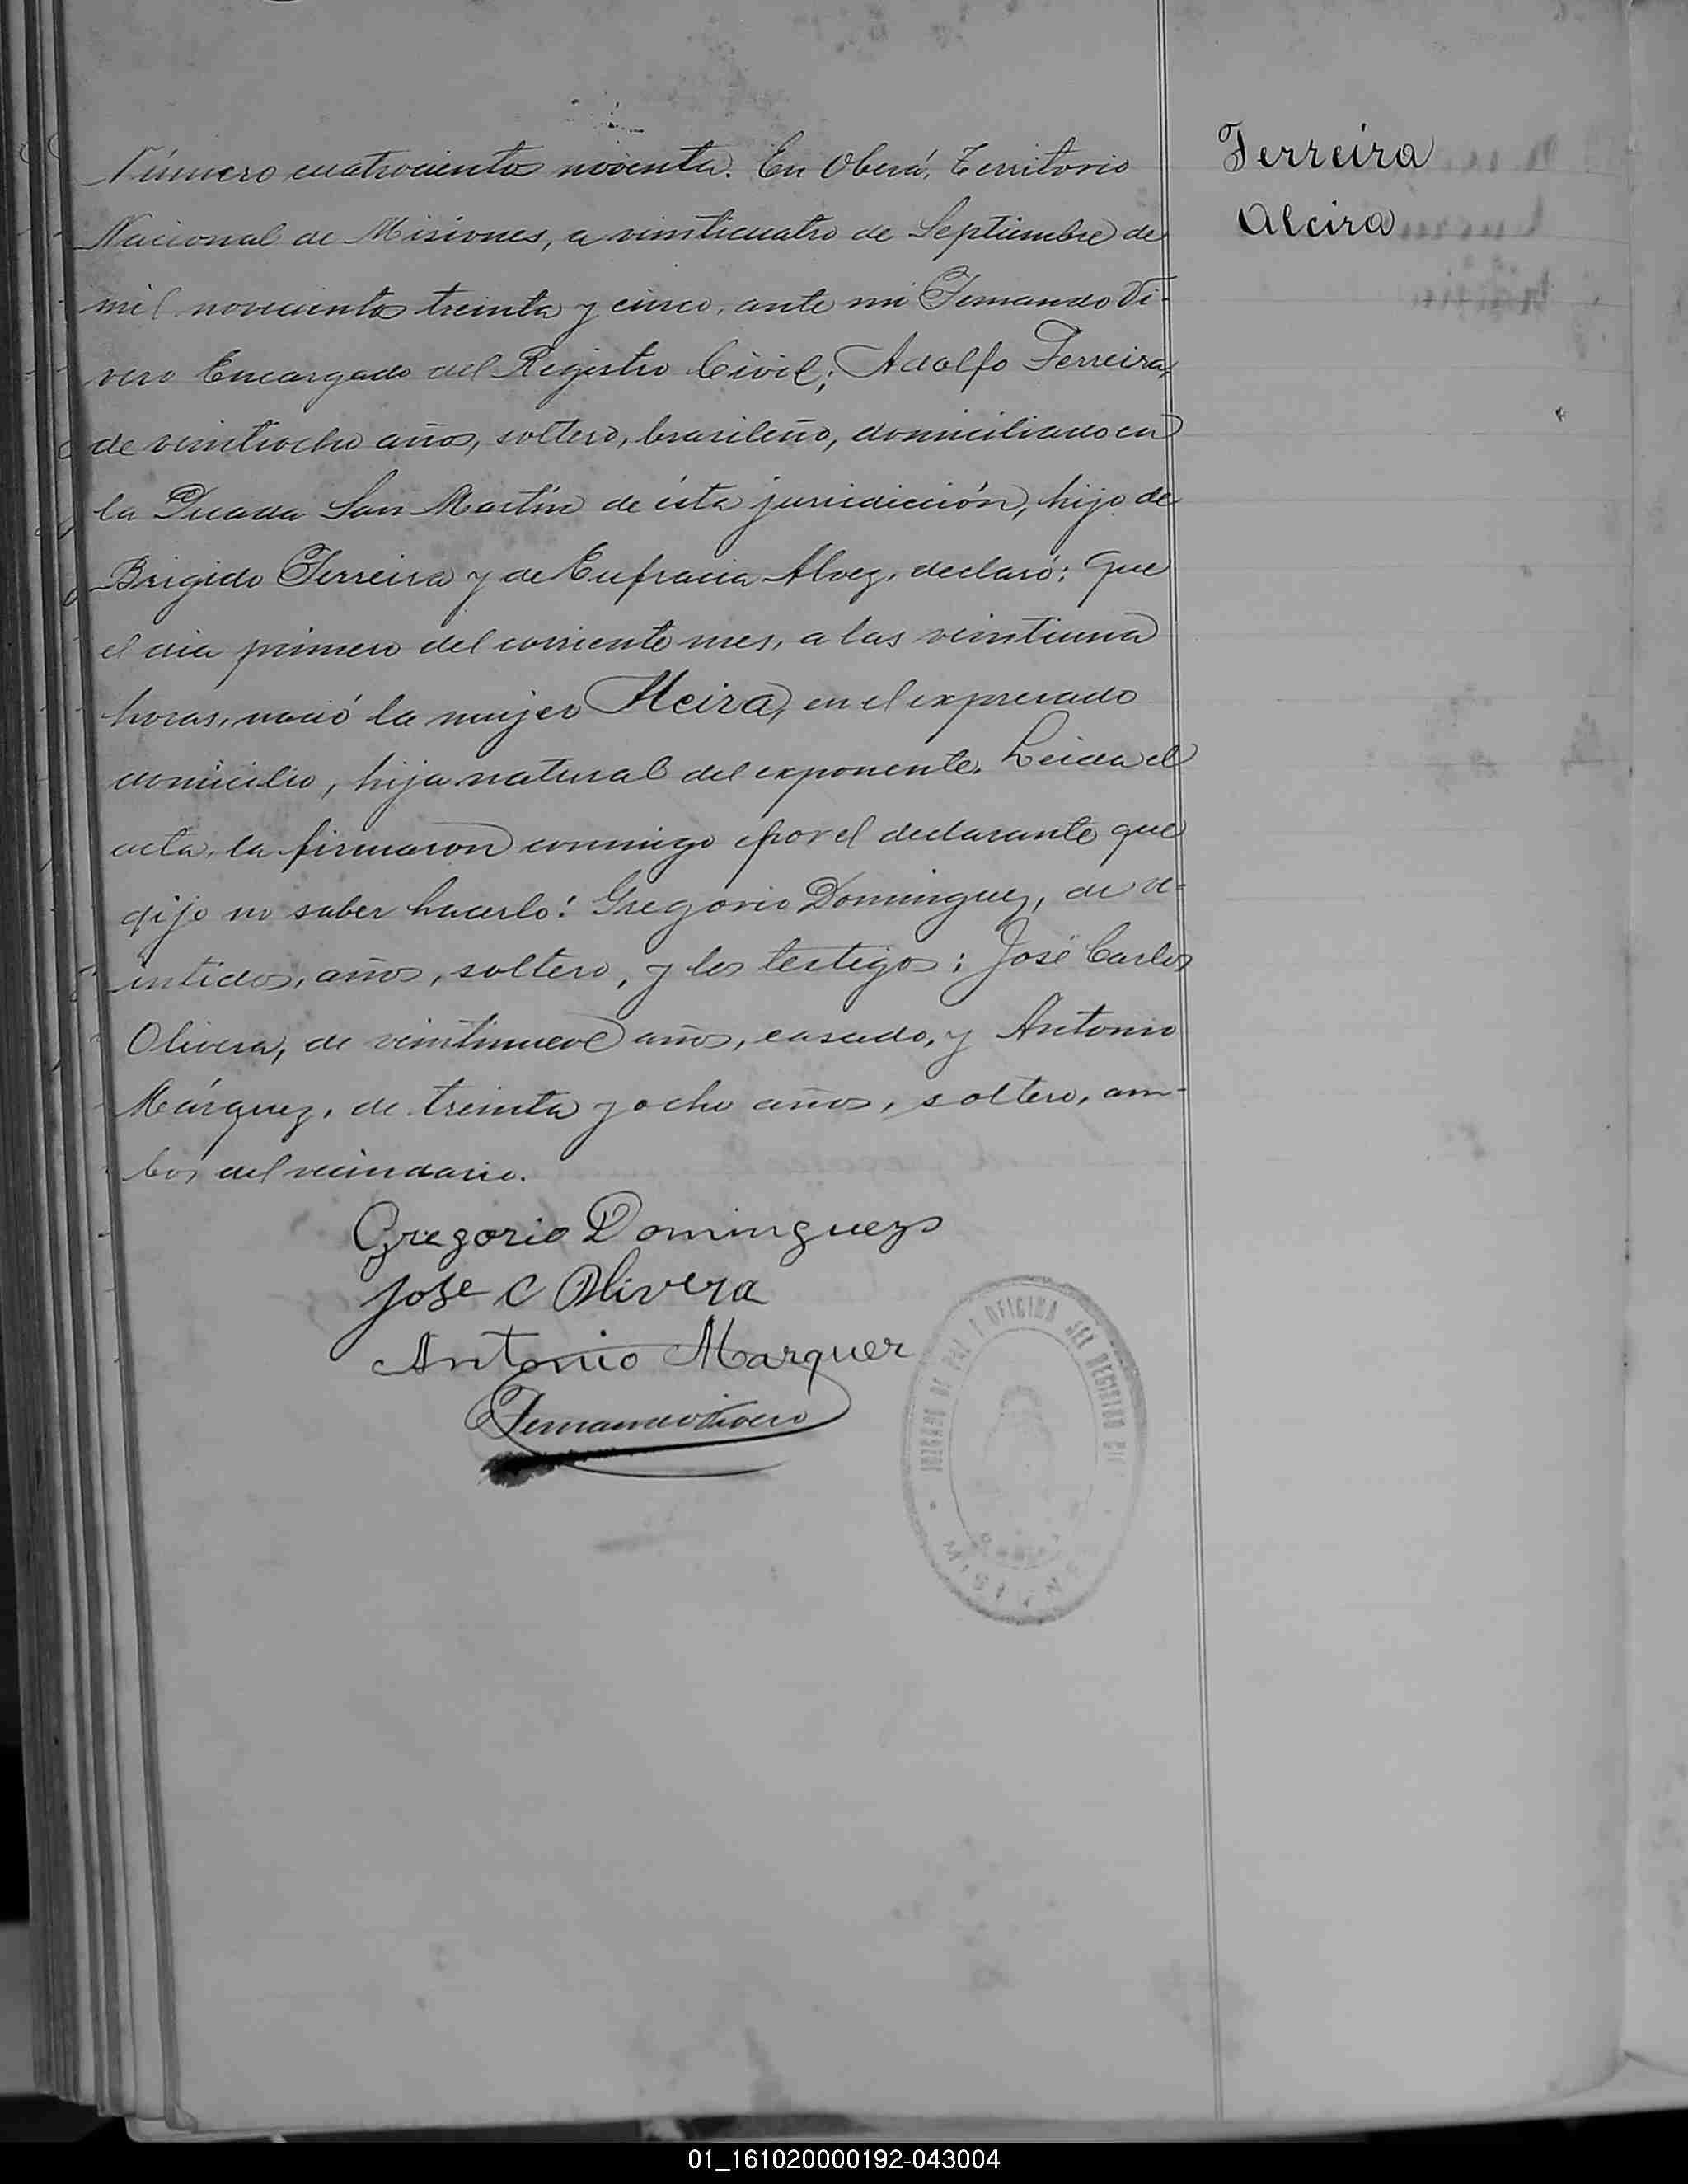 Número cuatrocientos noventa. En Oberá, Territorio
Nacional de Misiones, a veinticuatro de Septiembre de
mil novecientos treinta y cinco, ante mi Fernando Ti-
vero Encargado del Registro Civil; Adolfo Ferreira,
de veintiocho años, soltero, brasileño, domiciliado en
la Picada San Martín de ésta jurisdicción, hijo de
Brigido Ferreira y de Eufracia Alvez, declaró: Que
el dia primero del corriente mes, a las veintiuna
horas, nació la mujer Alcira, en el expresado
domicilio, hija natural del exponente. Leida el
acta, la firmaron conmigo por el declarante que
dijo no saber hacerlo: Gregorio Dominguez, de ve-
intidos, años, soltero, y los testigos: José Carlos
Olivera, de veintinueve años, casado, y Antonio
Márquez, de treinta y ocho años, soltero, am-
bos del vecindario.
Gregorio Dominguez
Jose C Olivera
Antonio Marquez
Fernando Tivero
Ferreira
Alcira
JUZGADO DE PAZ Y OFICINA DEL REGISTRO
MISIONES
01_161020000192-043004